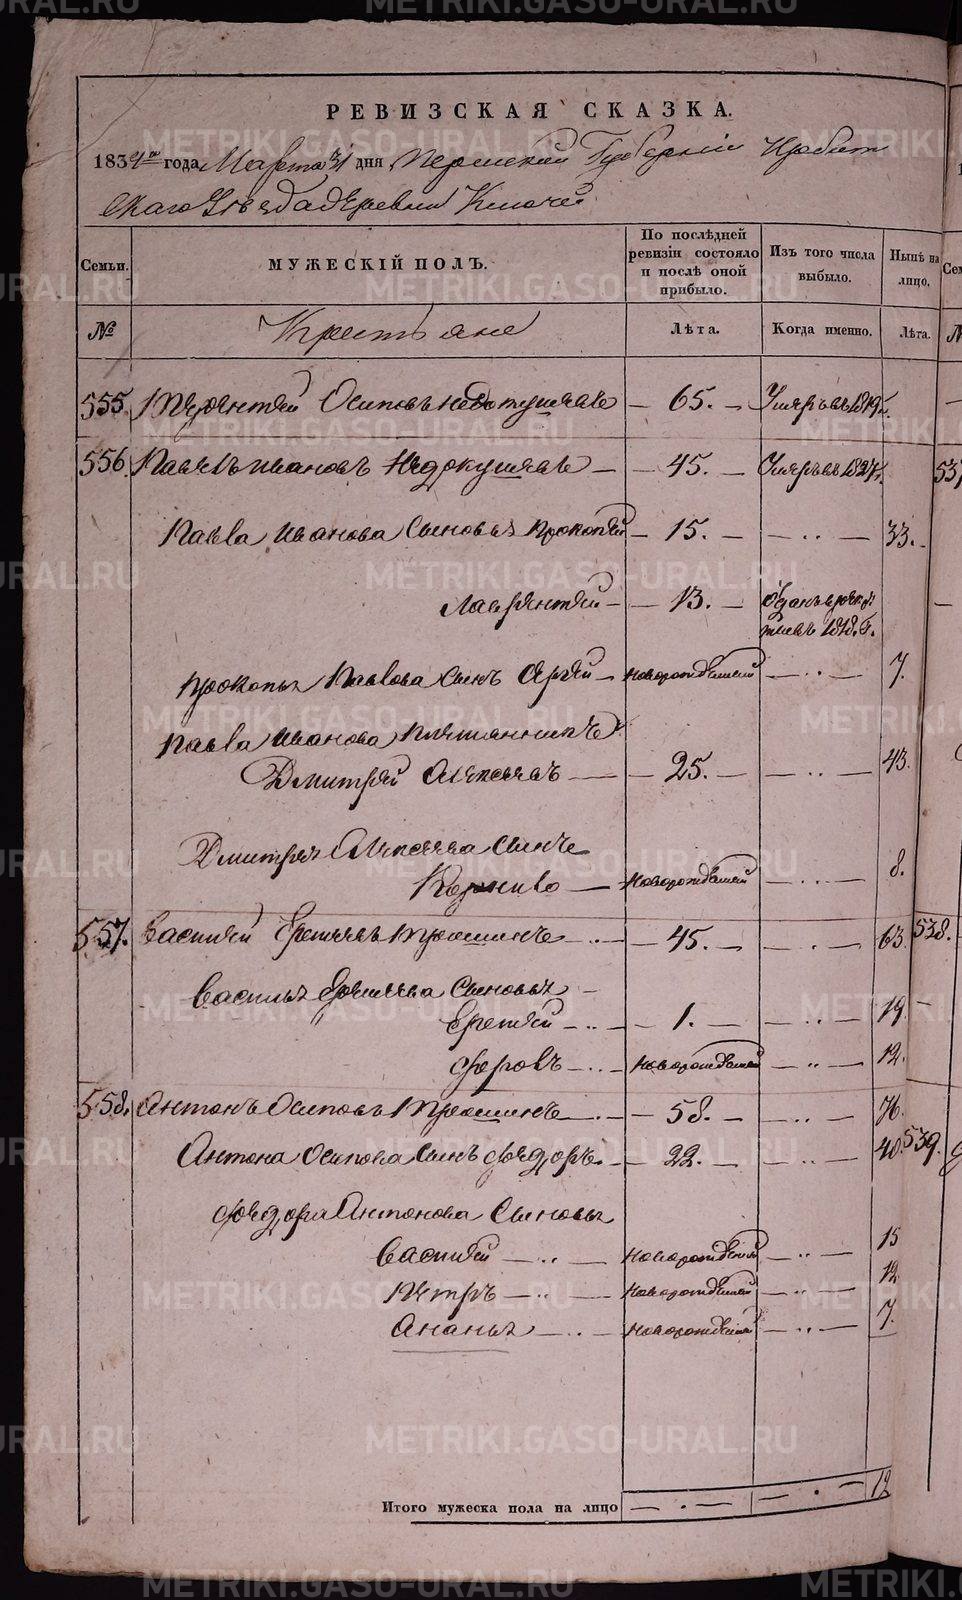 РЕВИЗСКАЯ СКАЗКА.
1834го года Марта 31 дня Пермской Губернiи Ирбит
скаго Уѣзда деревни Ключей
Семьи. МУЖЕСКIЙ ПОЛЪ. По послѣдней ревизiи состояло и послѣ оной прибыло. Изъ того числа выбыло. Нынѣ на лицо.
№ Крестьяне Лѣта. Когда именно. Лѣта.
555. Терентей Осиповъ — 65. — Умеръ въ 1819 г.
556. Павелъ Ивановъ — 45. — Умеръ въ 1827 г.
Павла Иванова Сыновья Прокопей — 15. — — „ — 33.
Лаврентей — 13. — отданъ в рекрты въ 1818. г.
Прокопья Павлова Сынъ Сергей — новорожденый — „ — 7.
Павла Иванова Племянникъ
Дмитрей Алексеевъ — 25. — — „ — 43.
Дмитрея Алексеева Сынъ
Корнило — новорожденый — „ — 8.
557. Василей Ермеевъ Трошинъ — 45. — — „ — 63.
Василья Еремеева Сыновья
Еремей — 1. — — „ — 19.
новорожденый — „ — 12.
558. Антонъ Осиповъ Трошинъ — 58. — — „ — 76.
Антона Осипова Сынъ Федоръ — 22. — — „ — 40.
Федора Антонова Сыновья
Василей — новорожденый — „ — 15
Петръ — новорожденый — „ — 12
Ананья — новорожденый — „ — 7.
Итого мужеска пола на лицо — . — — . — 12
537
538.
539.
METRIKI.GASO-URAL.RU